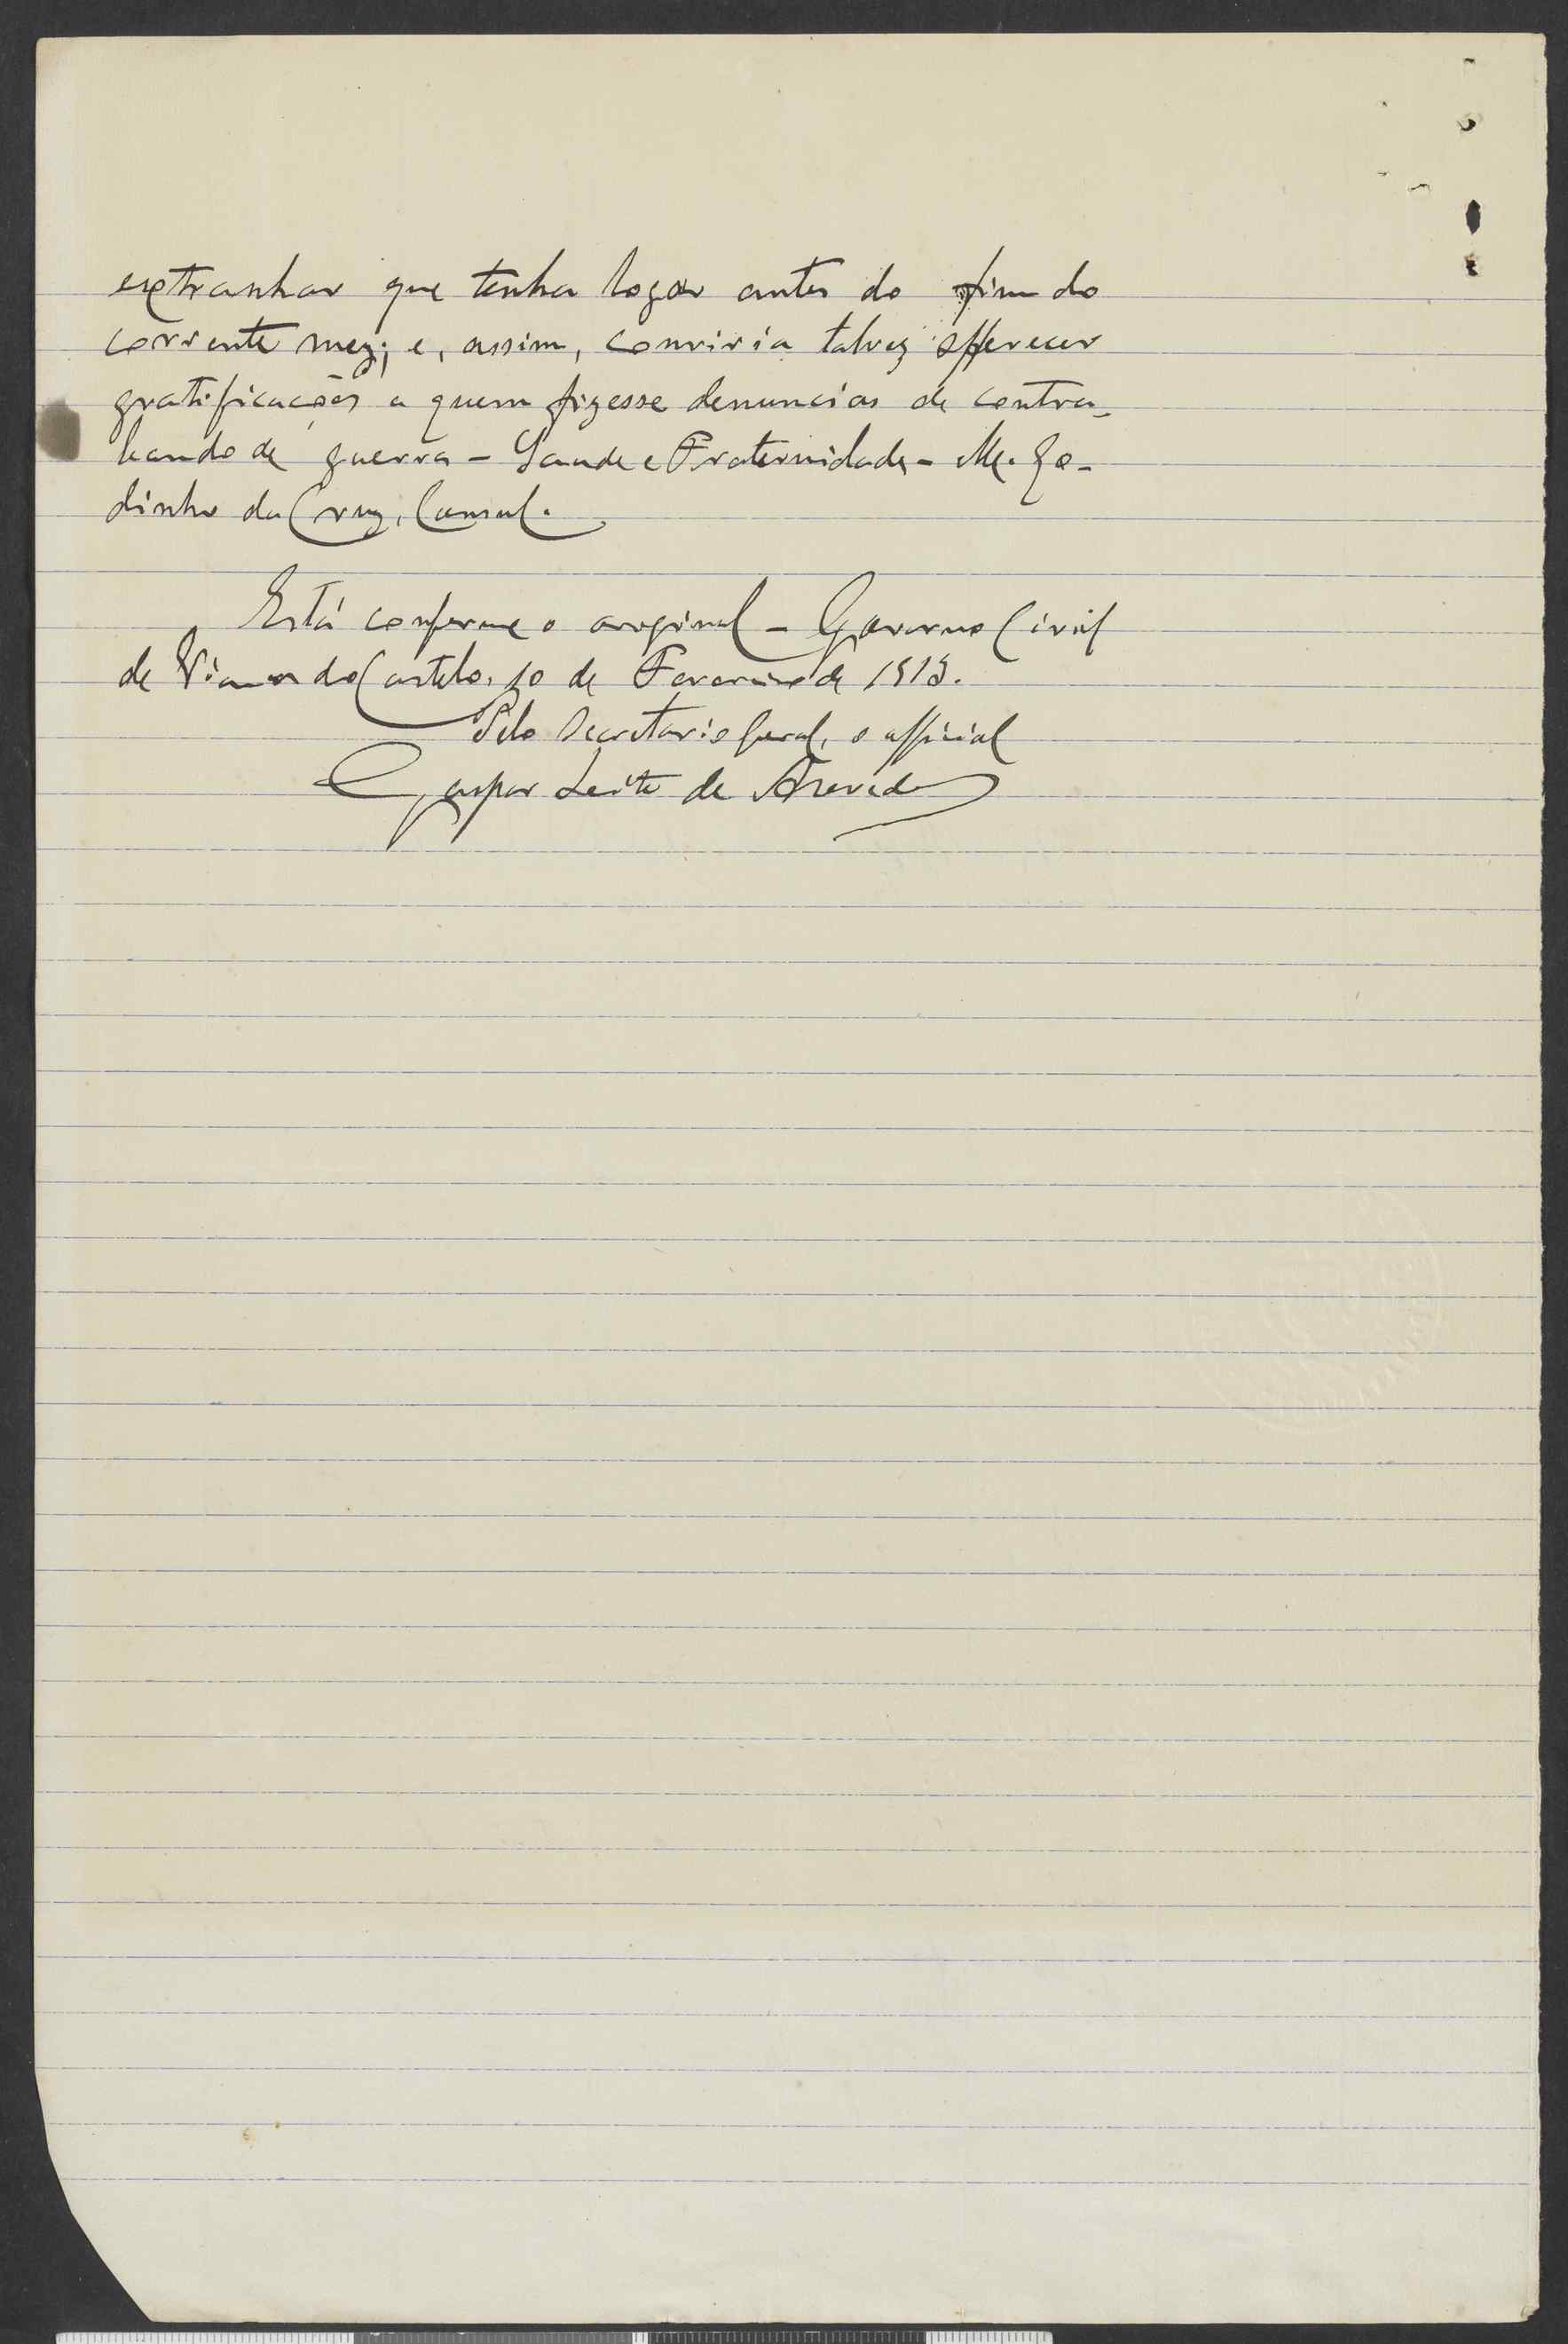 extranhar que tenha logar antes do fim do
corrente mez; e, assim, conviria talvez offerecer
gratificações a quem fizesse denuncias de contra-
bando de guerra - Saude e Fraternidade - Me. Go-
dinho da Cruz, Consul.
Está conforme o original - Governo Civil
de Viana do Castelo, 10 de Fevereiro de
Pelo Secretario Geral, o official
Gaspar Leite de Azevedo